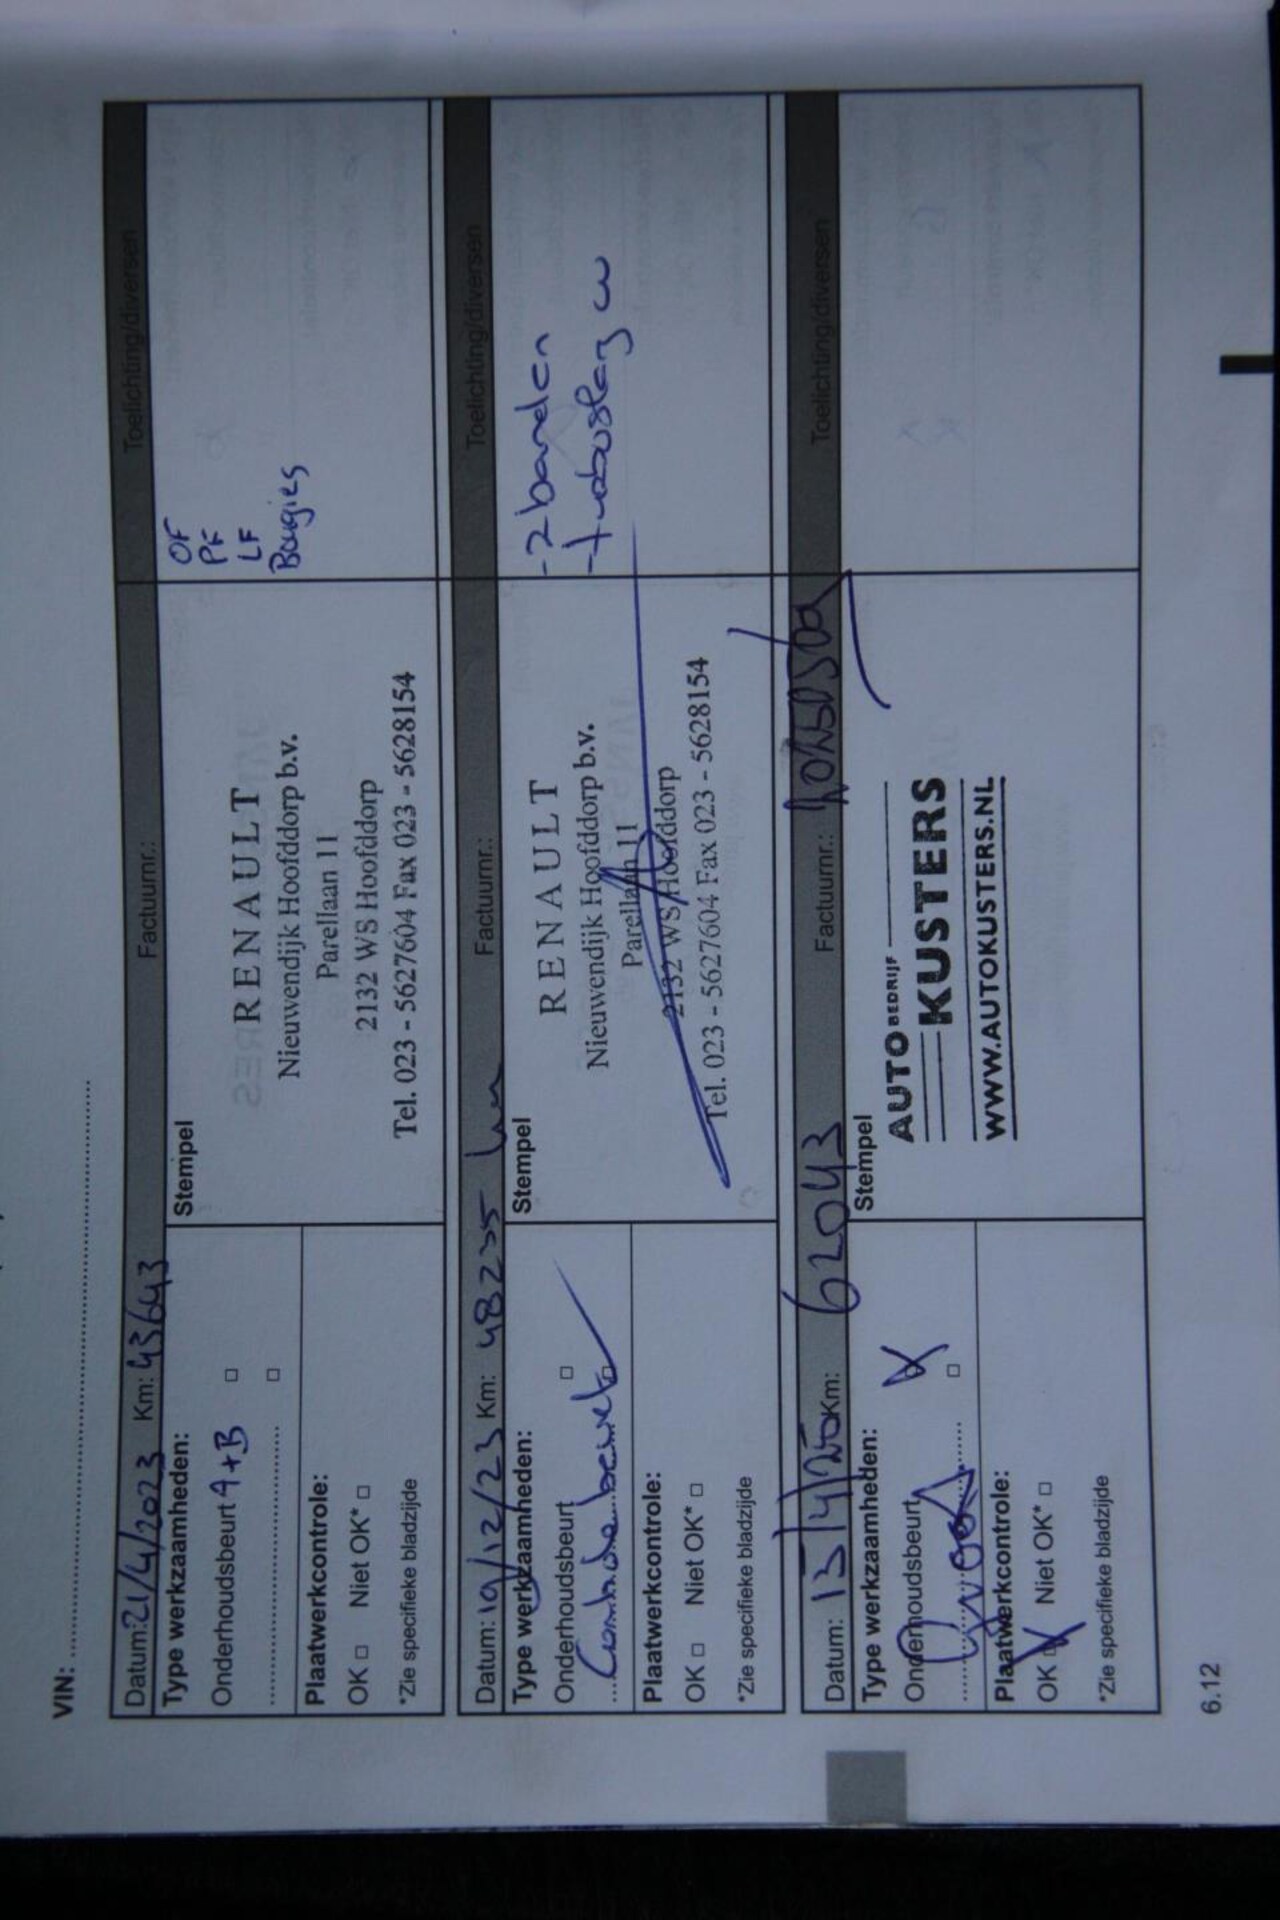 VIN: ........................
Datum: 21/4/2023 Km: 43643 Factuurnr.: Toelichting/diversen
Type werkzaamheden:
Onderhoudsbeurt A+B □
........................ □
Plaatwerkcontrole:
OK □ Niet OK* □
*Zie specifieke bladzijde
Stempel
RENAULT
Nieuwendijk Hoofddorp b.v.
Parellaan 11
2132 WS Hoofddorp
Tel. 023 - 5627604 Fax 023 - 5628154
OF
PF
LF
Bougies
Datum: 19/12/23 Km: 48235 km Factuurnr.: Toelichting/diversen
Type werkzaamheden:
Onderhoudsbeurt □
Plaatwerkcontrole:
OK □ Niet OK* □
*Zie specifieke bladzijde
Stempel
RENAULT
Nieuwendijk Hoofddorp b.v.
Parellaan 11
2132 WS Hoofddorp
Tel. 023 - 5627604 Fax 023 - 5628154
-2 banden
Datum: Km: 62043 Factuurnr.: Toelichting/diversen
Type werkzaamheden:
Onderhoudsbeurt X
Groot □
Plaatwerkcontrole:
OK X Niet OK* □
*Zie specifieke bladzijde
Stempel
AUTOBEDRIJF
KUSTERS
WWW.AUTOKUSTERS.NL
6.12